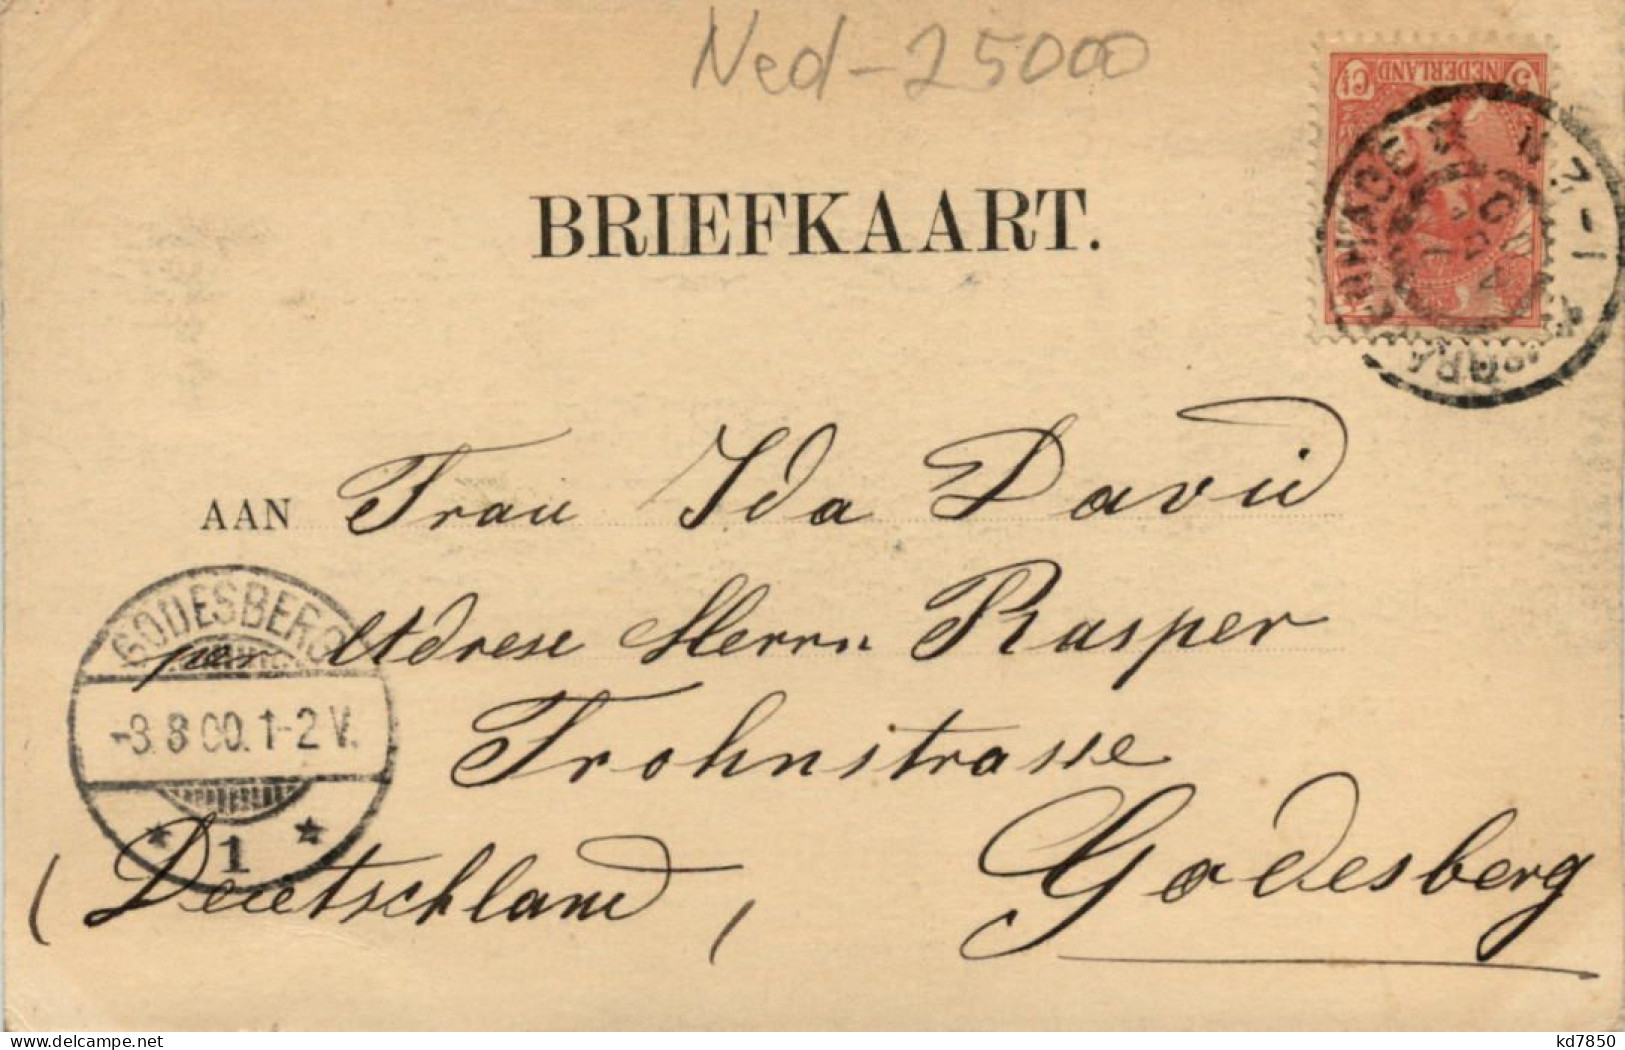 Ned-25000
5 NEDERLAND Ct
BRIEFKAART.
AAN Frau Ida David
per Adresse Herrn Rasper
Frohnstrasse
Godesberg
(Deutschland)
GODESBERG
-3.8.00.1-2V.
* 1 *
kd7850